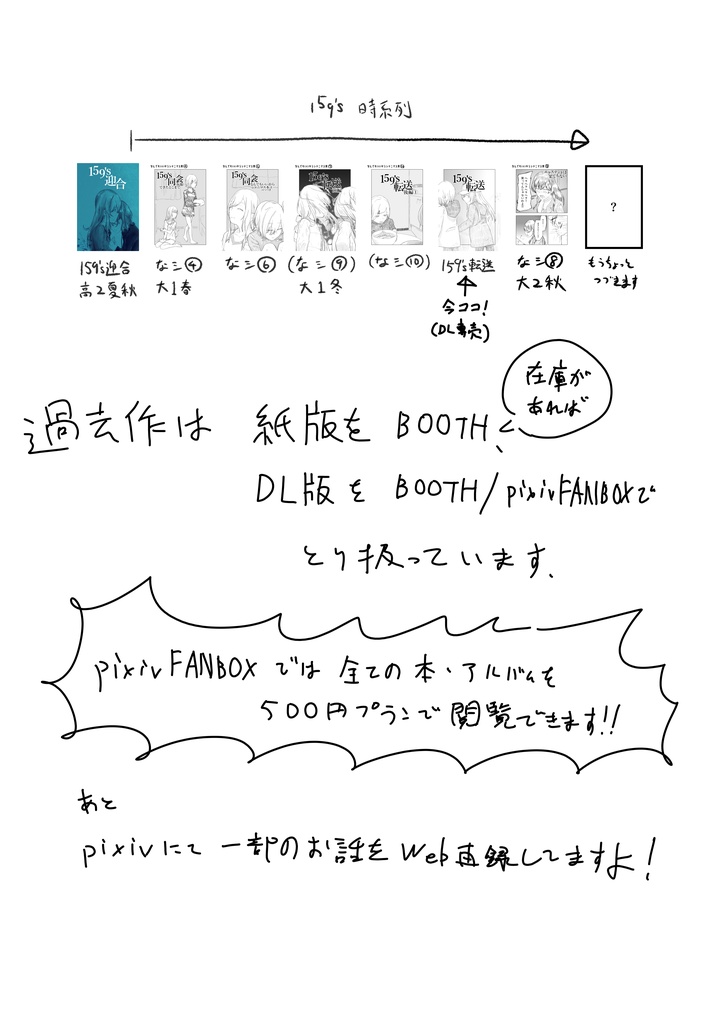 159's 時系列
159's
迎合
159's
同会
159's
同会
159's
転送
159's
転送
159's
転送
?
159's迎合
高2夏秋
なシ④
大1春
なシ⑥
(なシ⑨)
大1冬
(なシ⑩)
159's転送
↑
今ココ!
(DL専売)
なシ⑧
大2秋
もうちょっと
つづきます
在庫が
あれば
過去作は 紙版を BOOTH、
DL版を BOOTH/pixivFANBOXで
とり扱っています。
pixivFANBOXでは 全ての本・アルバムを
500円プランで閲覧できます!!
あと
pixivにて 一部のお話を Web再録してますよ!